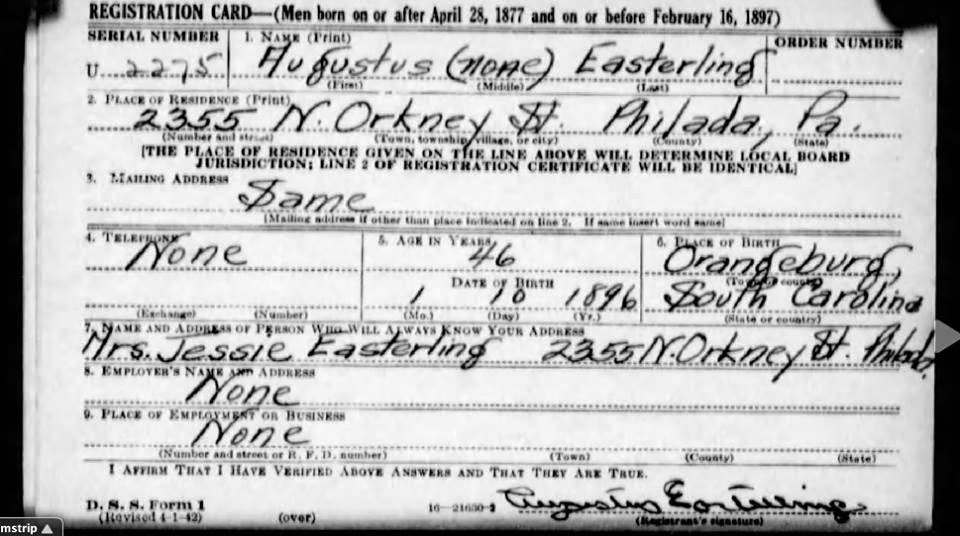 REGISTRATION CARD—(Men born on or after April 28, 1877 and on or before February 16, 1897)
SERIAL NUMBER 1. NAME (Print) ORDER NUMBER
U 2275 Augustus (none) Easterling
(First) (Middle) (Last)
2. PLACE OF RESIDENCE (Print)
2355 N. Orkney St. Philada, Pa.
(Number and street) (Town, township, village, or city) (County) (State)
[THE PLACE OF RESIDENCE GIVEN ON THE LINE ABOVE WILL DETERMINE LOCAL BOARD
JURISDICTION; LINE 2 OF REGISTRATION CERTIFICATE WILL BE IDENTICAL]
3. MAILING ADDRESS
Same
[Mailing address if other than place indicated on line 2. If same insert word same]
4. TELEPHONE 5. AGE IN YEARS 6. PLACE OF BIRTH
None 46 Orangeburg,
(Town or county)
DATE OF BIRTH
1 10 1896 South Carolina
(Exchange) (Number) (Mo.) (Day) (Yr.) (State or country)
7. NAME AND ADDRESS OF PERSON WHO WILL ALWAYS KNOW YOUR ADDRESS
Mrs. Jessie Easterling 2355 N. Orkney St. Philada.
8. EMPLOYER'S NAME AND ADDRESS
None
9. PLACE OF EMPLOYMENT OR BUSINESS
None
(Number and street or R. F. D. number) (Town) (County) (State)
I AFFIRM THAT I HAVE VERIFIED ABOVE ANSWERS AND THAT THEY ARE TRUE.
D. S. S. Form 1
(Revised 4-1-42) (over) 16—21630-2 Augustus Easterling
(Registrant's signature)
mstrip ▲